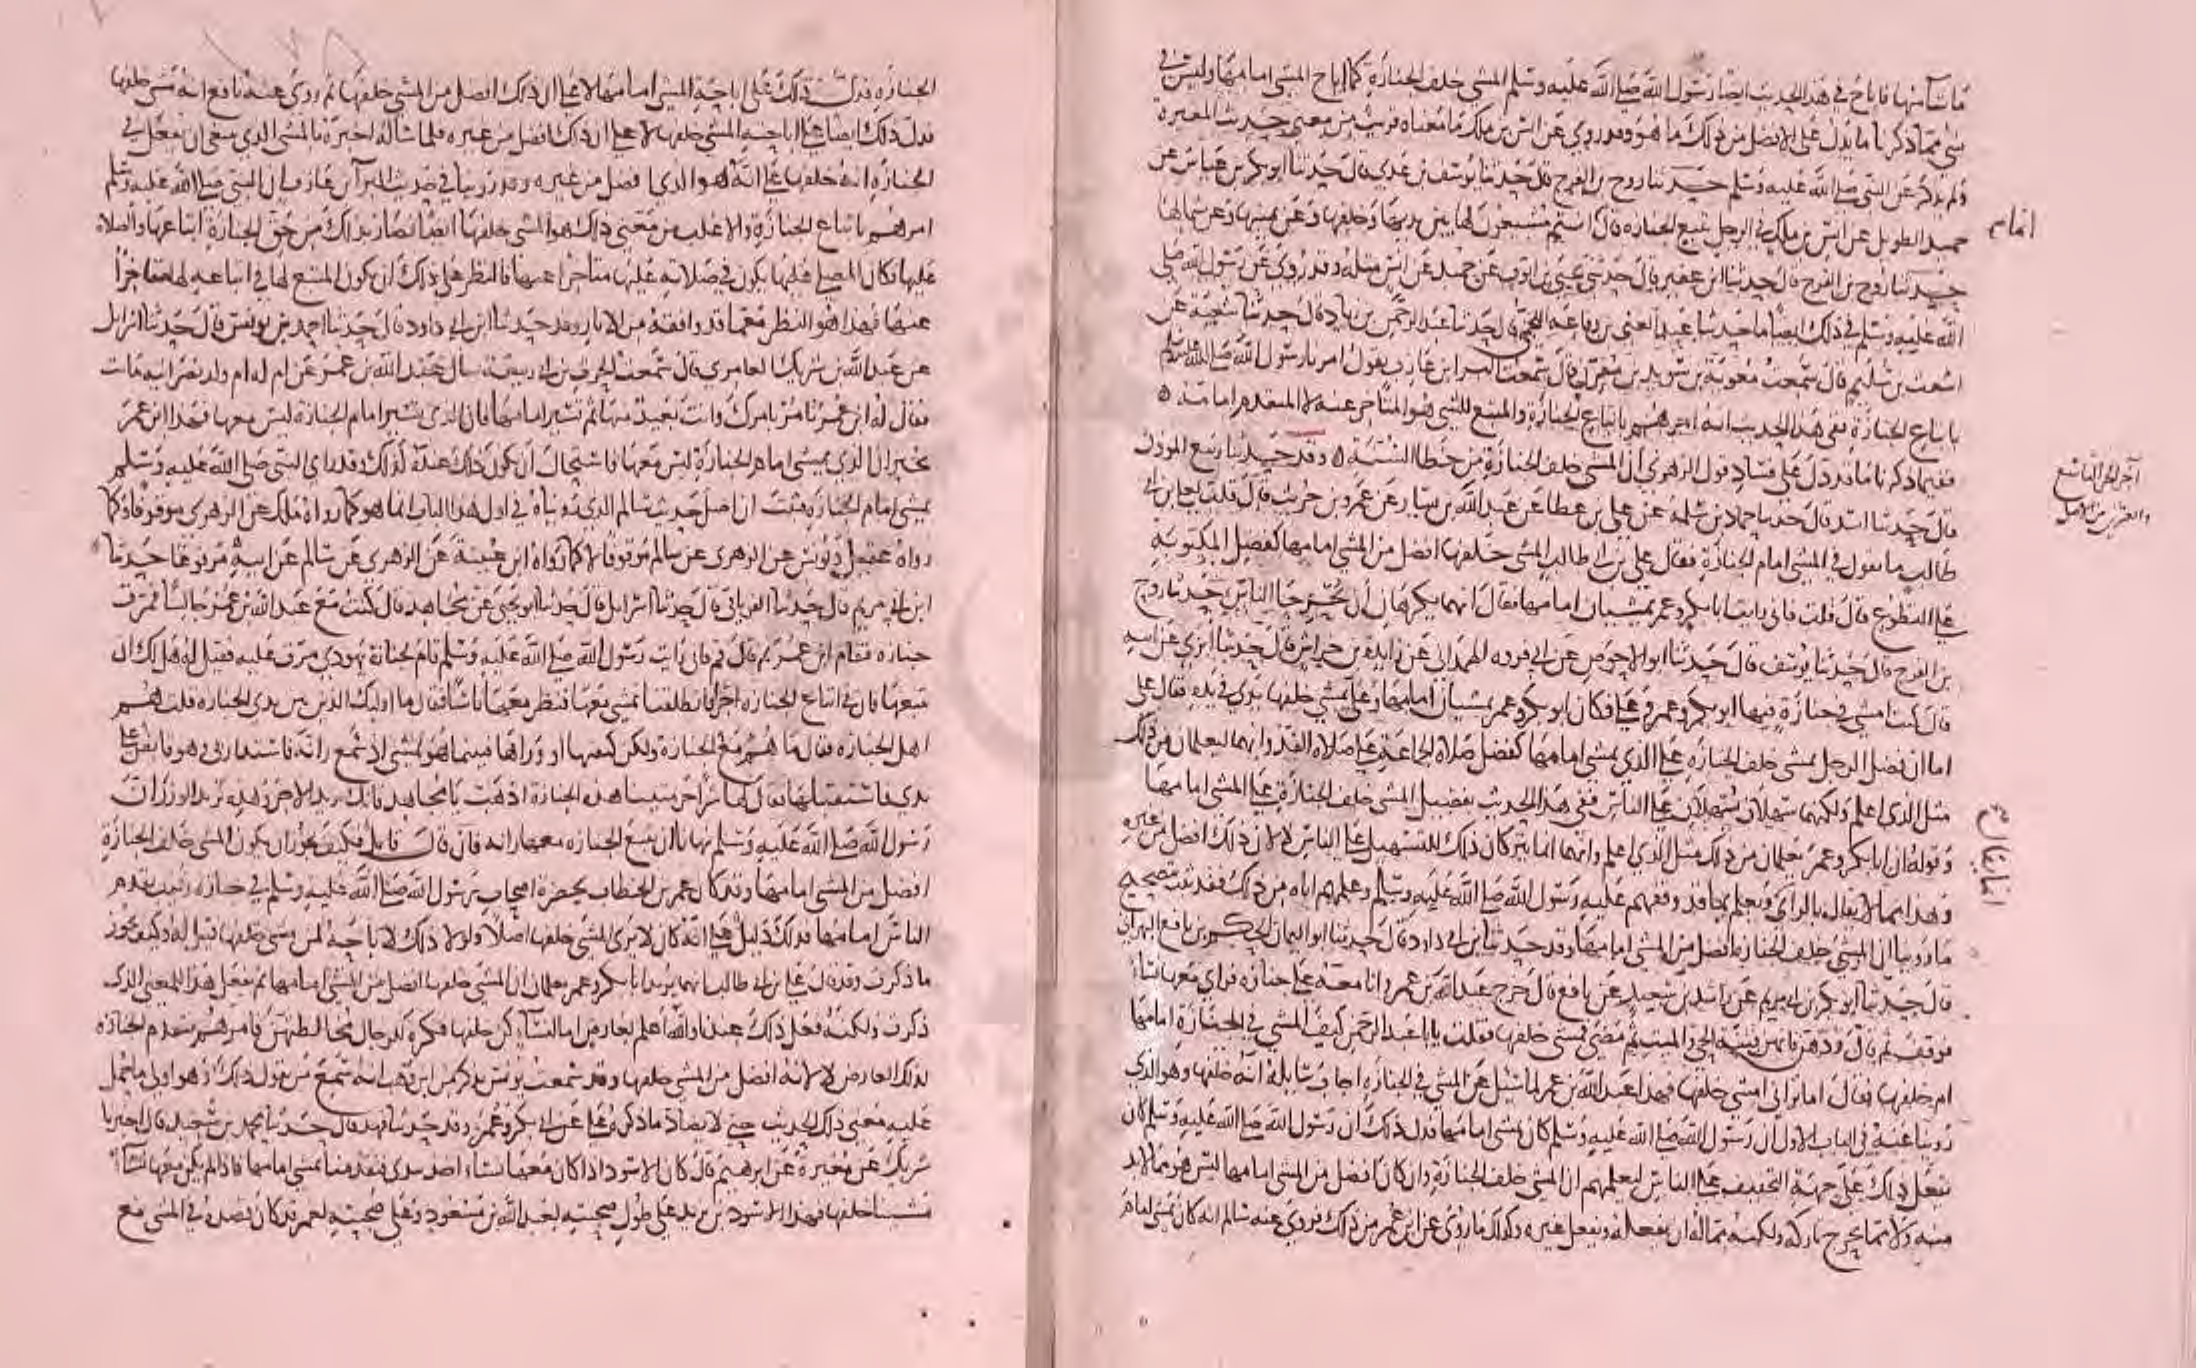 ما شا منها فاباح في هذا الحديث ايضا رسول الله صلى الله عليه وسلم المشي خلف الجنازة كما اباح المشي امامها وليس في
شي مما ذكرنا ما يدل على الافضل من ذلك ما هو وقد روي عن انس بن ملك ما معناه قريب من معنى حديث المغيرة
ولم يذكر عن النبي صلى الله عليه وسلم حدثنا روح بن الفرج قال حدثنا يوسف بن عدي قال حدثنا ابو بكر بن عياش عن
حميد الطويل عن انس بن ملك في الرجل يتبع الجنازة قال انتم مشيعون لها بين يديها وخلفها وعن يمينها وعن شمالها
حدثنا روح بن الفرج قال حدثنا ابن عفير قال حدثني يحيى بن ايوب عن حميد عن انس مثله وقد روي عن رسول الله صلى
الله عليه وسلم في ذلك ايضا ما حدثنا عبد الغني بن رفاعة قال حدثنا عبد الرحمن بن زياد قال حدثنا شعبة عن
اشعث بن سليم قال سمعت معوية بن سويد بن مقرن قال سمعت البرا بن عازب يقول امرنا رسول الله صلى الله عليه وسلم
باتباع الجنازة ففي هذا الحديث انه امرهم باتباع الجنازة والمتبع للشي هو المتاخر عنه لا المتقدم امامه
ففيما ذكرنا ما قد دل على فساد قول الزهري ان المشي خلف الجنازة من خطا السنة وقد حدثنا ربيع الموذن
قال حدثنا اسد قال حدثنا حماد بن سلمة عن يعلى بن عطا عن عبد الله بن يسار عن عمرو بن حريث قال قلت لعلي بن ابي
طالب ما تقول في المشي امام الجنازة فقال علي بن ابي طالب المشي خلفها افضل من المشي امامها كفضل المكتوبة
على التطوع قال قلت فاني رايت ابا بكر وعمر يمشيان امامها فقال انهما يكرهان ان يحرجا الناس حدثنا روح
بن الفرج قال حدثنا يوسف قال حدثنا ابو الاحوص عن ابي فروة الهمداني عن زايدة بن خراش قال حدثنا ابن ابزي عن ابيه
قال كنت امشي في جنازة فيها ابو بكر وعمر وعلي فكان ابو بكر وعمر يمشيان امامها وعلي يمشي خلفها يدي في يده فقال علي
اما ان فضل الرجل يمشي خلف الجنازة على الذي يمشي امامها كفضل صلاة الجماعة على صلاة الفذ وانهما ليعلمان من ذلك
مثل الذي اعلم ولكنهما سهلان يسهلان على الناس ففي هذا الحديث تفضيل المشي خلف الجنازة على المشي امامها
وقوله ان ابا بكر وعمر يعلمان من ذلك مثل الذي اعلم وانهما انما يتركان ذلك للتسهيل على الناس لا لان ذلك افضل من غيره
وهذا مما لا يقال بالراي وفعلهم عليه رسول الله صلى الله عليه وسلم وعلمهم اياه من ذلك فقد ثبت بتصحيح
ما روينا ان المشي خلف الجنازة افضل من المشي امامها وقد حدثنا ابن ابي داود قال حدثنا ابو اليمان الحكم بن نافع البهراني
قال حدثنا ابو بكر بن ابي مريم عن راشد بن سعيد عن نافع قال خرج عبد الله بن عمر وانا معه على جنازة فراى معها نسا
فوقف ثم قال فتنة الحي والميت ثم مضى فمشى خلفها فقلت يا ابا عبد الرحمن كيف المشي في الجنازة امامها
ام خلفها فقال اما تراني امشي خلفها فهذا عبد الله بن عمر لما سئل عن المشي في الجنازة اجاب سايله انه خلفها وهو الذي
روينا عنه في الباب الاول ان رسول الله صلى الله عليه وسلم كان يمشي امامها فدل ذلك ان رسول الله صلى الله عليه وسلم كان
يفعل ذلك على جهة التخفيف على الناس ليعلمهم ان المشي خلف الجنازة وان كان افضل من المشي امامها ليس هو مما لا بد
منه ولا مما يحرج تاركه ولكنه مما له ان يفعله ويفعل غيره وكذلك ما روي عن ابن عمر من ذلك فروي عنه سالم انه كان يمشي امام
امام
آخر الجزء التاسع
والعشرين من الاصل
الجنازة فدل ذلك على اباحة المشي امامها لا على ان ذلك افضل من المشي خلفها ثم روى عنه نافع انه مشى خلفها
فدل ذلك ايضا على اباحته المشي خلفها لا على ان ذلك افضل من غيره فلما ساله اخبره بالمشي الذي ينبغي ان يفعل في
الجنازة انه خلفها على انه هو الذي افضل من غيره وقد روينا في حديث البرا بن عازب ان النبي صلى الله عليه وسلم
امرهم باتباع الجنازة والاغلب من معنى ذلك هو المشي خلفها ايضا فصار بذلك من حق الجنازة اتباعها والصلاة
عليها فكان المصلي عليها يكون في صلاته عليها متاخرا عنها فالنظر على ذلك ان يكون المتبع لها في اتباعه لها متاخرا
عنها فهذا هو النظر مع ما قد وافقه من الاثار وقد حدثنا ابن ابي داود قال حدثنا احمد بن يونس قال حدثنا اسرايل
عن عبد الله بن شريك العامري قال سمعت الحرث بن ابي ربيعة سال عبد الله بن عمر عن ام ولد نصرانية ماتت
فقال له ابن عمر تامر بامرك وانت بعيد منها ثم تسير امامها فان الذي يسير امام الجنازة ليس معها فهذا ابن عمر
يخبر ان الذي يمشي امام الجنازة ليس معها فاستحال ان يكون ذلك عنده كذلك وقد راى النبي صلى الله عليه وسلم
يمشي امام الجنازة فثبت ان اصل حديث سالم الذي رويناه في اول هذا الباب انما هو كما رواه ملك عن الزهري موقوفا وكما
رواه عقيل ويونس عن الزهري عن سالم موقوفا لا كما رواه ابن عيينة عن الزهري عن سالم عن ابيه مرفوعا حدثنا
ابن ابي مريم قال حدثنا الفريابي قال حدثنا اسرايل قال حدثنا ابو يحيى عن مجاهد قال كنت مع عبد الله بن عمر جالسا فمرت
جنازة فقام ابن عمر ثم قال قم فاني رايت رسول الله صلى الله عليه وسلم قام لجنازة يهودي مرت عليه فقيل له هل لك ان
تتبعها فان في اتباع الجنازة اجرا فانطلقنا نمشي معها فنظر معها ناسا فقال ما اوليك الذين بين يدي الجنازة قلت هم
اهل الجنازة فقال ما هم مع الجنازة ولكن كنفيها او وراها فبينما هو يمشي اذ سمع رانة فاستدارني وهو قابض على
يدي فاستقبلها فقال لها شرا حرمتينا هذه الجنازة اذهب يا مجاهد فانك تريد الاجر وهذه تريد الوزر ان
رسول الله صلى الله عليه وسلم نهانا ان نتبع الجنازة معها رانة فان قال قايل فكيف يجوز ان يكون المشي خلف الجنازة
افضل من المشي امامها وقد كان عمر بن الخطاب بحضرة اصحاب رسول الله صلى الله عليه وسلم في جنازة زينب يقدم
الناس امامها فذلك دليل على انه كان لا يرى المشي خلفها اصلا ولولا ذلك لاباحه لمن مشى خلفها قيل له وكيف يجوز
ما ذكرت وقد قال علي بن ابي طالب انهما يريد ابا بكر وعمر يعلمان ان المشي خلفها افضل من المشي امامها ثم يفعل هذا المعنى الذي
ذكرت ولكنه فعل ذلك عندنا والله اعلم لعارض اما لنسا كن خلفها فكره للرجال مخالطتهن فامرهم بتقدم الجنازة
لذلك العارض لا لانه افضل من المشي خلفها وقد سمعت يونس يذكر عن ابن وهب انه سمع من يقول ذلك وهو اولى ما حمل
عليه معنى ذلك الحديث حتى لا يضاد ما ذكره علي عن ابي بكر وعمر وقد حدثنا فهد قال حدثنا محمد بن سعيد قال اخبرنا
شريك عن مغيرة عن ابرهيم قال كان الاسود اذا كان معها نسا اخذ بيدي فتقدمنا نمشي امامها فاذا لم يكن معها نسا
مشينا خلفها فهذا الاسود بن يزيد على طول صحبته لعبد الله بن مسعود وعلى صحبته لعمر قد كان قصده في المشي مع